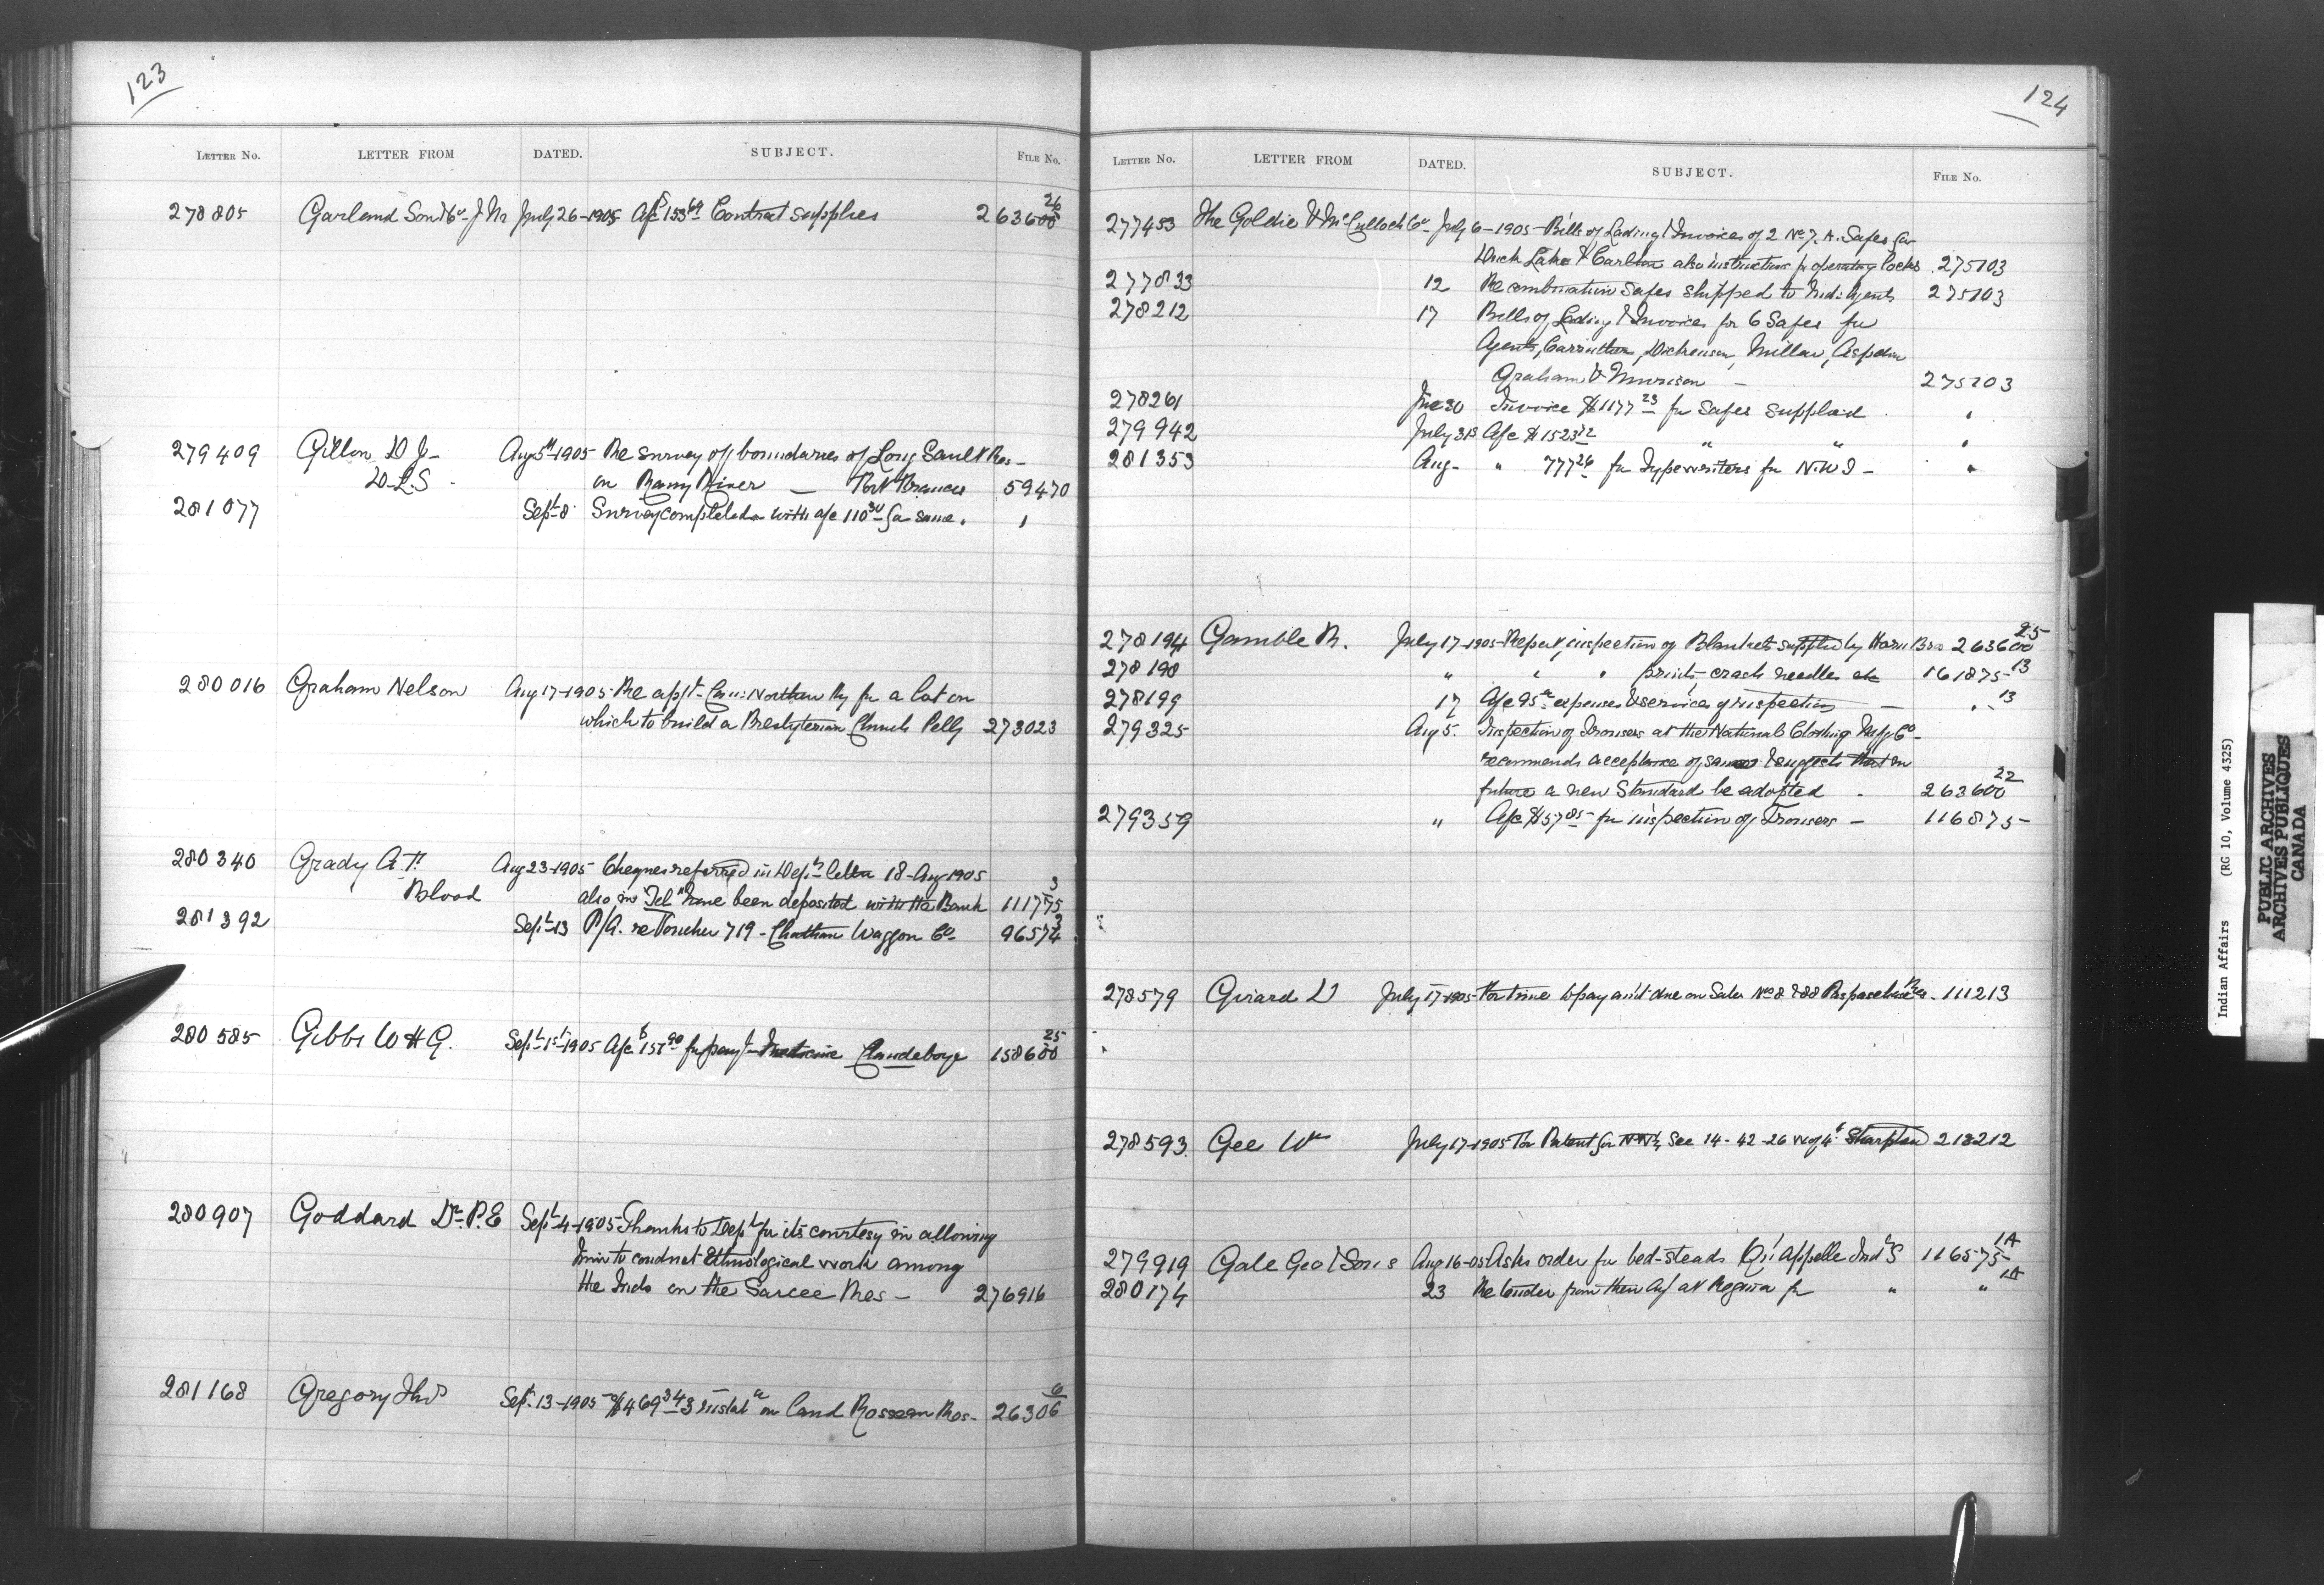 123
LETTER No. LETTER FROM DATED. SUBJECT. FILE No.
278805 Garland Son & Co. J. M. July 26-1905 A/c $153.69 Contract Supplies 263600 26
279409 Gillon D J- Aug 5th-1905 Re survey of boundaries of Long Sault Res-
D.L.S. on Rainy River — Fort Frances 59470
281077 Sept 8 Survey completed with a/c 110.30 for same. "
280016 Graham Nelson Aug 17-1905 Re appt- Can: Northern Ry for a lot on
which to build a Presbyterian Church Pelly 273023
280340 Grady A.T. Aug 23-1905 Cheques referred in Dept's letter 18-Aug-1905
Blood also in "Tel" have been deposited with the Bank 111775 3
281392 Sept-13 P/A. re Voucher 719- Chatham Waggon Co- 96574 2
280585 Gibbs W H G. Sept 1st-1905 A/c $157.90 for Medicine Clandeboye 158600 25
280907 Goddard Dr. P.E Sept-4-1905 Thanks to Dept for its courtesy in allowing
him to conduct Ethnological work among
the Inds on the Sarcee Res- 276916
281168 Gregory Thos Sept-13-1905 $469.34 3 instal on land Rosseau Res- 26306 6
124
LETTER No. LETTER FROM DATED. SUBJECT. FILE No.
277453 The Goldie & McCulloch Co- July 6-1905- Bills of Lading & Invoices of 2 No 7. A. Safes for
Duck Lake & Carlton also instructions for operating locks 275103
277833 12 Re combination Safes shipped to Ind: Agents 275103
278212 17 Bills of Lading & Invoices for 6 Safes for
Agents, Carruthers, Dickenson, Millar, Aspdin
Graham & Murison - 275103
278261 June 30 Invoice $1177.23 for Safes supplied "
279942 July 31 A/c $1523.12 " " "
281353 Aug- " 777.26 for Typewriters for N.W.T- "
278194 Gamble R. July 17-1905- Report, inspection of Blankets supplied by Horn Bros 263600 25
278198 " " " prints, crash needles etc 161875-13
278199 17 A/c 95 expenses & services of inspection — " 13
279325 Aug 5. Inspection of Trousers at the National Clothing Mnfg Co-
recommends acceptance of same & suggests that in
future a new Standard be adopted - 263600 22
279359 " A/c $57.85 for inspection of Trousers - 116875-
278579 Girard D July 17-1905- For time to pay am't due on Sales Nos 8 & 88 Paspaschase Res. 111213
278593 Gee Wm July 17-1905 For Patent for N.W¼ Sec 14-42-26 W of 4th Sharphead 213212
279919 Gale Geo & Sons Aug 16-05 Asks order for bed-steads Qu'Appelle Ind S 116575- 1A
280174 23 Re tender from their Agt at Regina for " " 1A
Indian Affairs (RG 10, Volume 4325)
PUBLIC ARCHIVES
ARCHIVES PUBLIQUES
CANADA